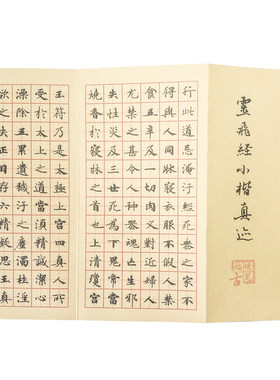 靈飛經小楷真迹
行此道忌淹汙經死喪之家不
得與人同牀寢衣服不假人禁
食五辛及一切肉又對近婦人
尤禁之甚令人神喪魂亡生邪
失性災及三世死為下鬼常當
燒香於寢牀之首也上清瓊宮
玉符乃是太極上宮四真人所
受於太上之道當須精誠潔心
澡除五累遺穢汙之塵濁杜淫
欲之失正目存六精凝思玉真